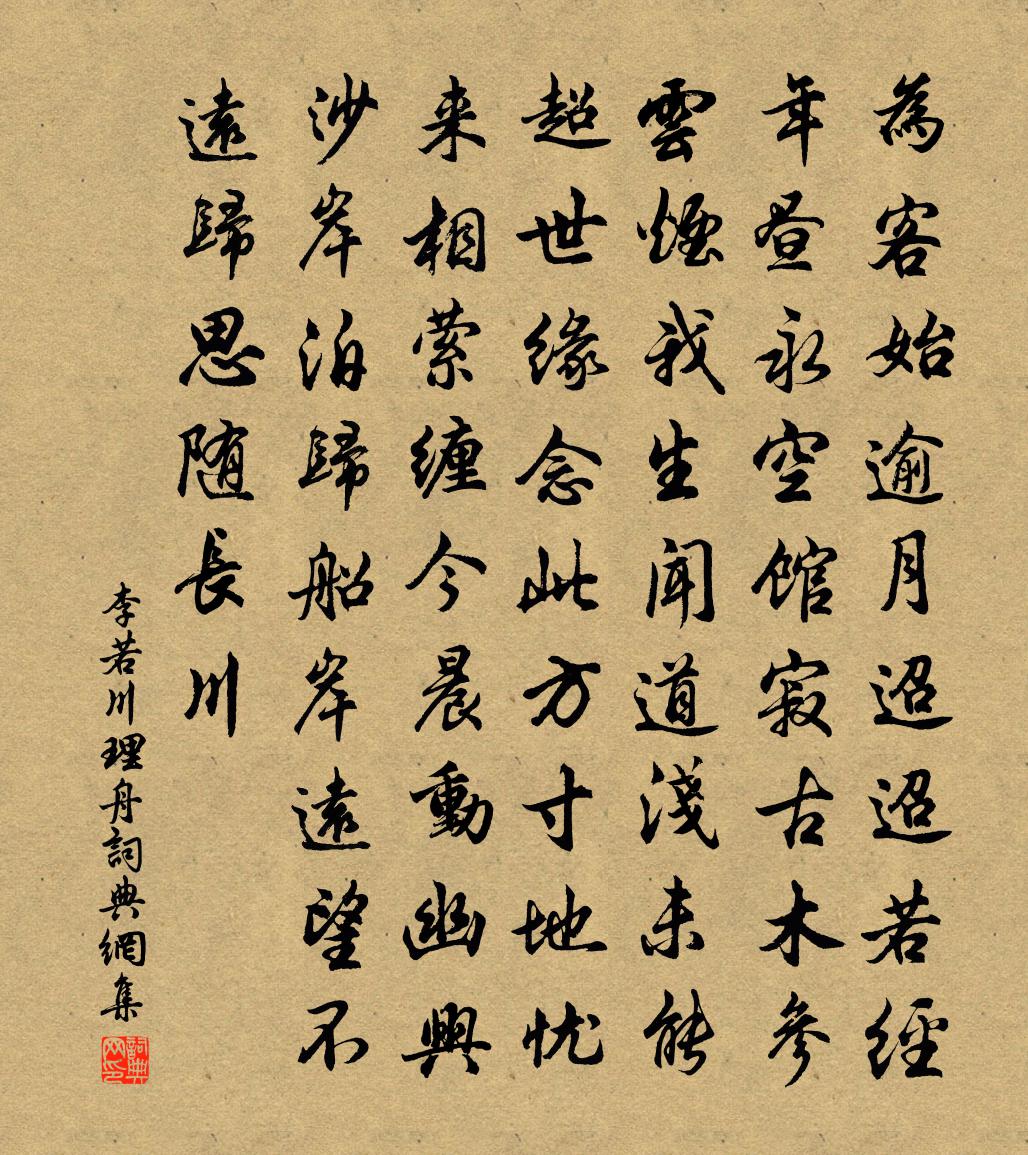 為客始逾月迢迢若經
年昼永空館寂古木參
雲煙我生聞道淺未能
超世緣念此方寸地忧
来相萦纏今晨動幽興
沙岸泊歸船岸遠望不
遠歸思随長川
李若川理舟詞典網集
詞典网印